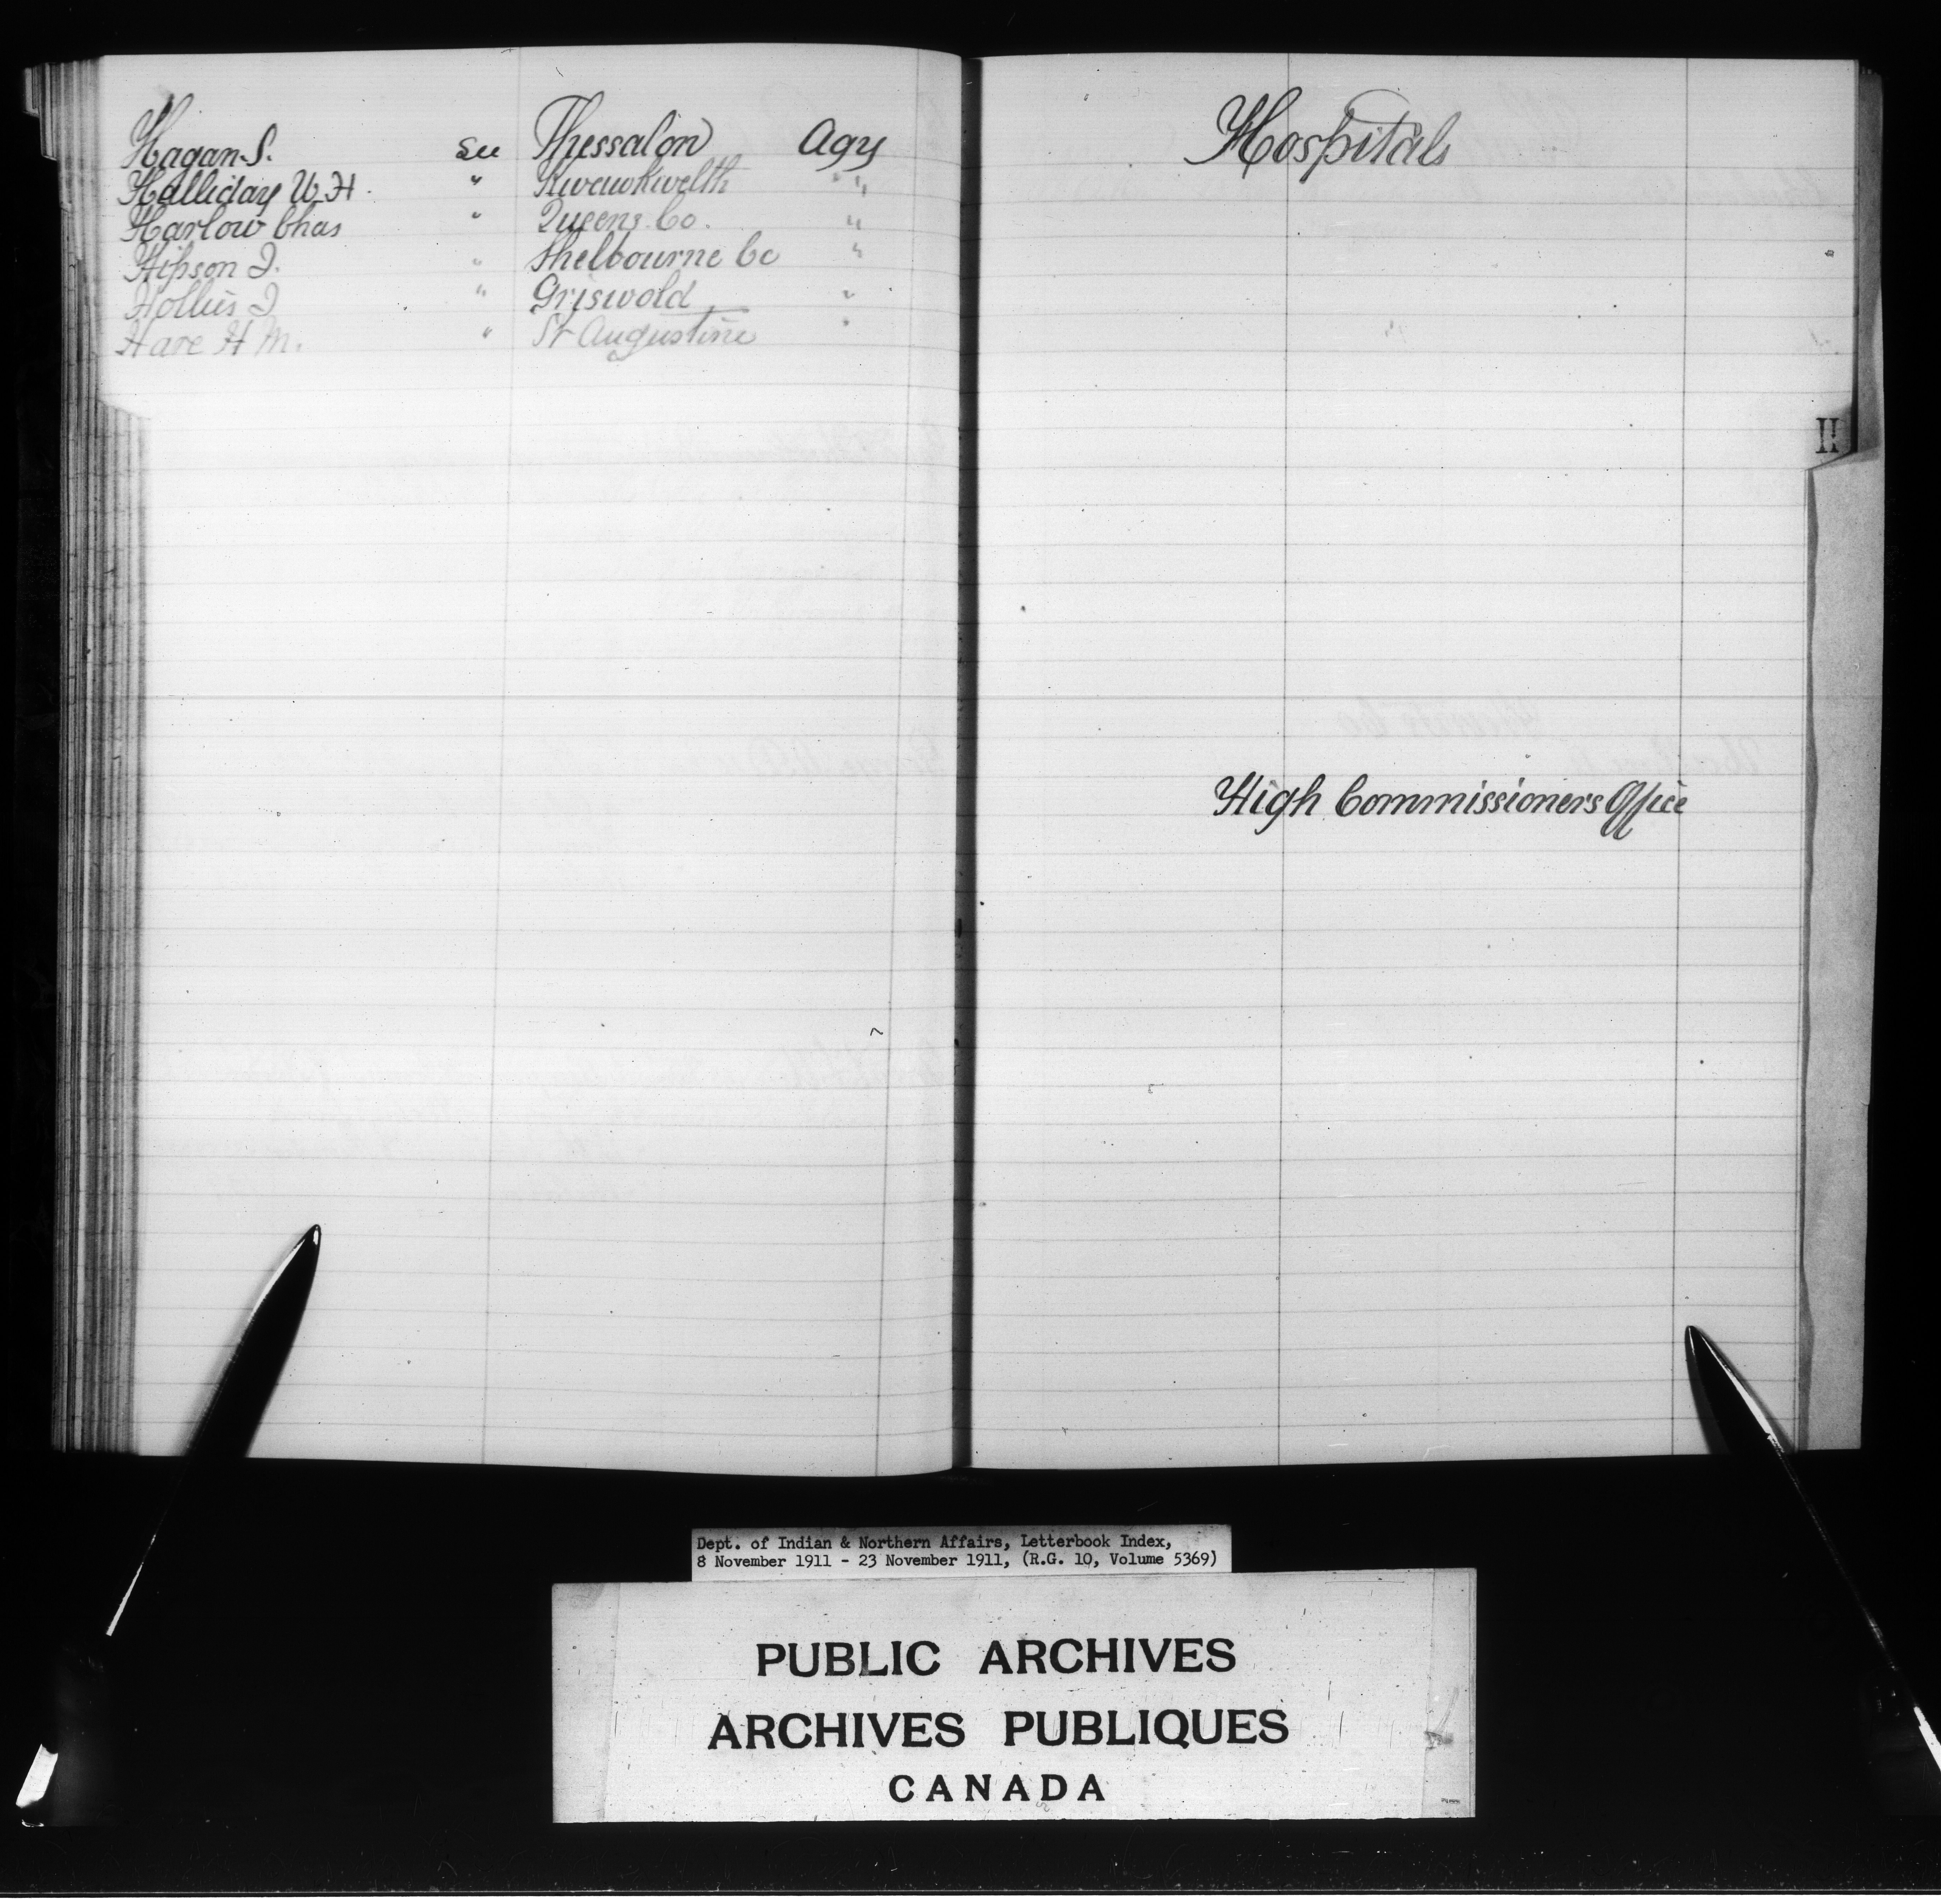 Hagan S. See Thessalon Agy
Halliday W. H. " Kwawkwelth " "
Harlow Chas " Queens Co. "
Hipson J. " Shelbourne Co "
Hollies J " Griswold "
Hare H M. " St Augustine "
Hospitals
H
High Commissioners Office
Dept. of Indian & Northern Affairs, Letterbook Index,
8 November 1911 - 23 November 1911, (R.G. 10, Volume 5369)
PUBLIC ARCHIVES
ARCHIVES PUBLIQUES
CANADA